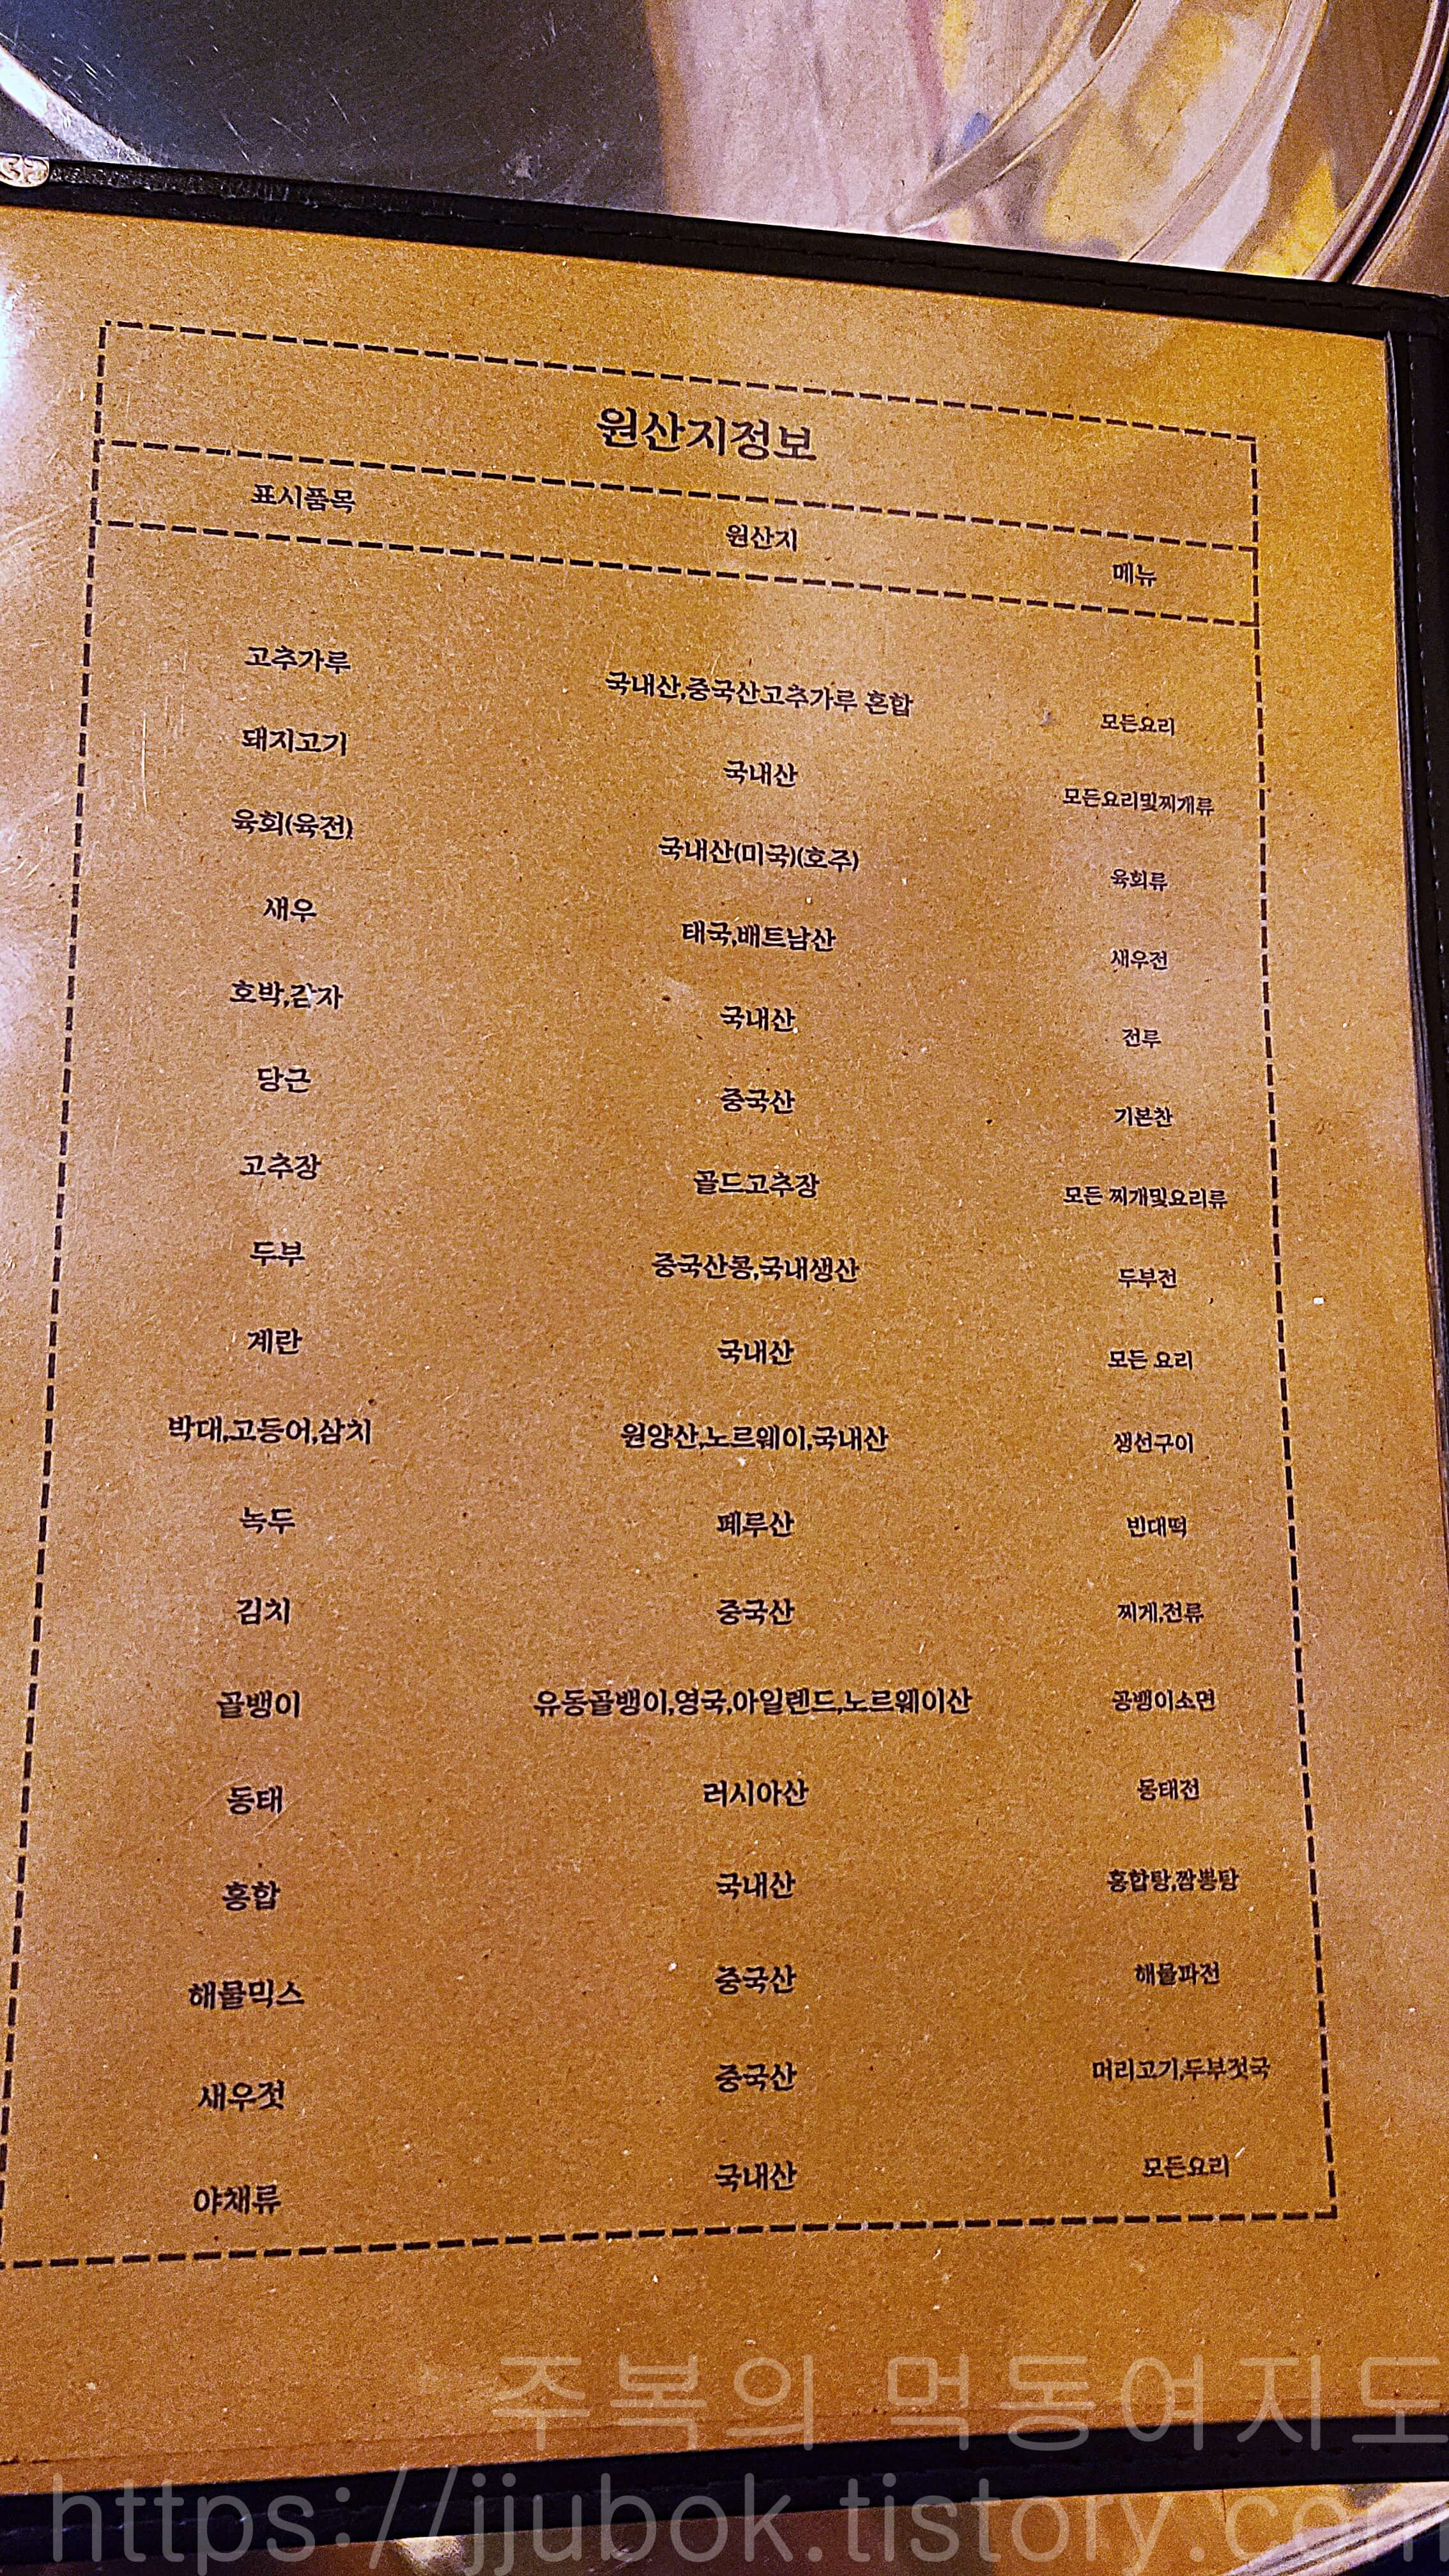 원산지정보
표시품목 원산지 메뉴
고추가루 국내산,중국산고추가루 혼합 모든요리
돼지고기 국내산 모든요리및찌개류
육회(육전) 국내산(미국)(호주) 육회류
새우 태국,배트남산 새우전
호박,감자 국내산 전루
당근 중국산 기본찬
고추장 골드고추장 모든 찌개및요리류
두부 중국산콩,국내생산 두부전
계란 국내산 모든 요리
박대,고등어,삼치 원양산,노르웨이,국내산 생선구이
녹두 페루산 빈대떡
김치 중국산 찌게,전류
골뱅이 유동골뱅이,영국,아일렌드,노르웨이산 공뱅이소면
동태 러시아산 동태전
홍합 국내산 홍합탕,짬뽕탕
해물믹스 중국산 해물파전
새우젓 중국산 머리고기,두부젓국
야채류 국내산 모든요리
주복의 먹동여지도
https://jjubok.tistory.com